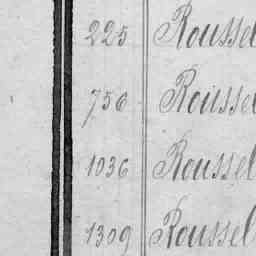 225 Roussel
756 Roussel
1036 Roussel
1309 Roussel